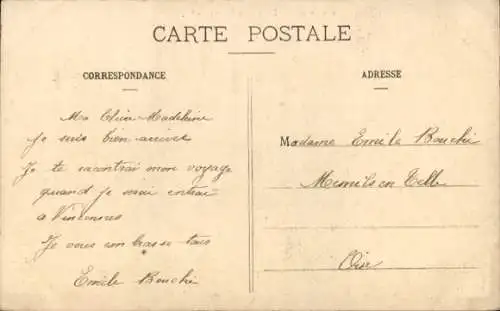 CARTE POSTALE
CORRESPONDANCE
Ma Chère Madeleine
Je suis bien arrivée
Je te racontrai mon voyage
quand je serai entrai
a Vincennes
Je vous embrasse tous
Emile Bouché
ADRESSE
Madame Emile Bouché
Mesnils en Telle
Oise